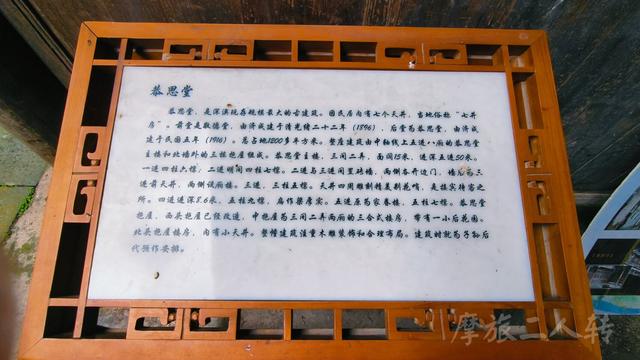 恭思堂
恭思堂，是深溪现存规模最大的古建筑。因民居内有七个天井，当地俗称“七井
房”。前堂是敬德堂，由济成建于清光绪二十二年（1896），后堂为恭思堂，由济成
建于民国五年（1916）。总占地1200多平方米。整座建筑由中轴线上五进八厢的恭思堂
主楼和北墙外的三栋抱屋组成。恭思堂主楼，三间二弄，面阔15米，进深五近50米。
一进四柱九檩，二进明间四柱七檩。二进与三进间置砖墙，两侧各开边门，
进前天井，两侧设厢楼。三进，三柱五檩。天井四周雕刻精美刹羡，是接宾待客之
所。四进进深5.6米，五柱七檩，后作梁厚实。五进原为家眷楼，五柱七檩。恭思堂
抱屋，西头抱屋已经改造，中抱屋为三间二弄两厢的三合天楼房，带有一小后花园。
北头抱屋楼房，内有小天井。整幢建筑注重木雕装饰和合理布局。建筑时就为子孙后
代预作安排。
摩旅二人转